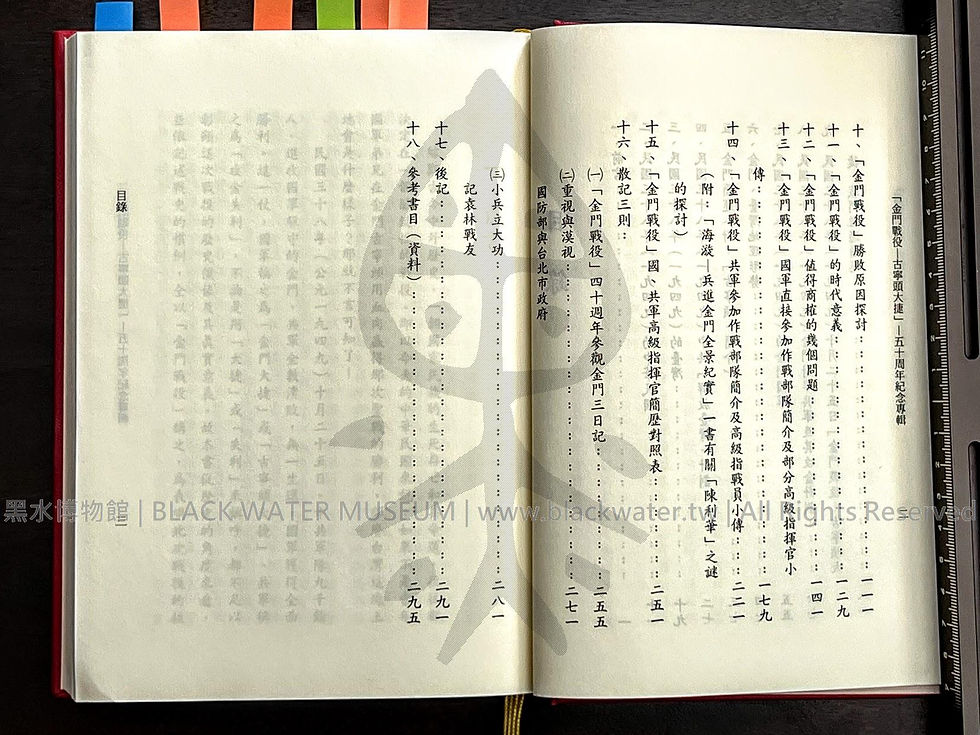 「金門戰役—古寧頭大捷」—五十周年紀念專輯
十、「金門戰役」勝敗原因探討：：：：：：：：：：：：一一一
十一、「金門戰役」的時代意義：：：：：：：：：：：：一二九
十二、「金門戰役」值得商榷的幾個問題：：：：：：：：：一四一
十三、「金門戰役」國軍直接參加作戰部隊簡介及部分高級指揮官小
傳：：：：：：：：：：：：：：：：：：一七九
十四、「金門戰役」共軍參加作戰部隊簡介及高級指戰員小傳：：二二一
（附：「海漩—兵進金門全景紀實」一書有關「陳利華」之謎
的探討）
十五、「金門戰役」國、共軍高級指揮官簡歷對照表：：：：二五一
十六、散記三則：
㈠「金門戰役」四十週年參觀金門三日記：：：：：：二五五
㈡重視與漠視：：：：：：：：：：：：：：二七一
國防部與台北市政府
㈢小兵立大功：：：：：：：：：：：：：：二八一
記袁林戰友
十七、後記：：：：：：：：：：：：：：：：二九一
十八、參考書目（資料）：：：：：：：：：：：：二九五
目錄
黑水博物館 | BLACK WATER MUSEUM | www.blackwater.tw | All Rights Reserved